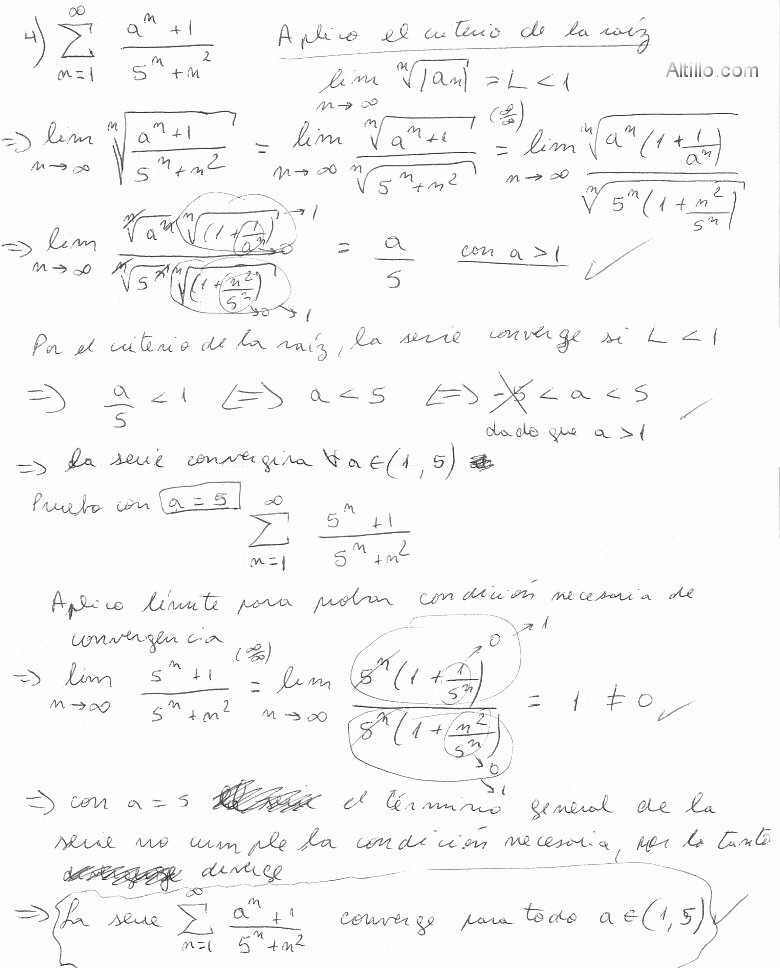 4) ∑_{n=1}^{∞} (a^n + 1)/(5^n + n^2) Aplico el criterio de la raíz
lim_{n→∞} ⁿ√|an| = L < 1
Altillo.com
=> lim_{n→∞} ⁿ√((a^n + 1)/(5^n + n^2)) = lim_{n→∞} ⁿ√(a^n + 1) / ⁿ√(5^n + n^2) (∞/∞) = lim_{n→∞} ⁿ√(a^n (1 + 1/a^n)) / ⁿ√(5^n (1 + n^2/5^n))
=> lim_{n→∞} (ⁿ√(a^n) ⁿ√(1 + 1/a^n)) / (ⁿ√(5^n) ⁿ√(1 + n^2/5^n)) →1 →0 →0 →1 = a/5 con a > 1 ✓
Por el criterio de la raíz, la serie converge si L < 1
=> a/5 < 1 <=> a < 5 <=> -5 < a < 5 ✓
dado que a > 1
=> la serie convergira ∀ a ∈ (1, 5)
Pruebo con a = 5 ∑_{n=1}^{∞} (5^n + 1)/(5^n + n^2)
Aplico límite para probar condición necesaria de
convergencia
=> lim_{n→∞} (5^n + 1)/(5^n + n^2) (∞/∞) = lim_{n→∞} (5^n (1 + 1/5^n))/(5^n (1 + n^2/5^n)) →0 →1 →0 →1 = 1 ≠ 0 ✓
=> con a = 5 el término general de la
serie no cumple la condición necesaria, por lo tanto
diverge
=> La serie ∑_{n=1}^{∞} (a^n + 1)/(5^n + n^2) converge para todo a ∈ (1, 5) ✓